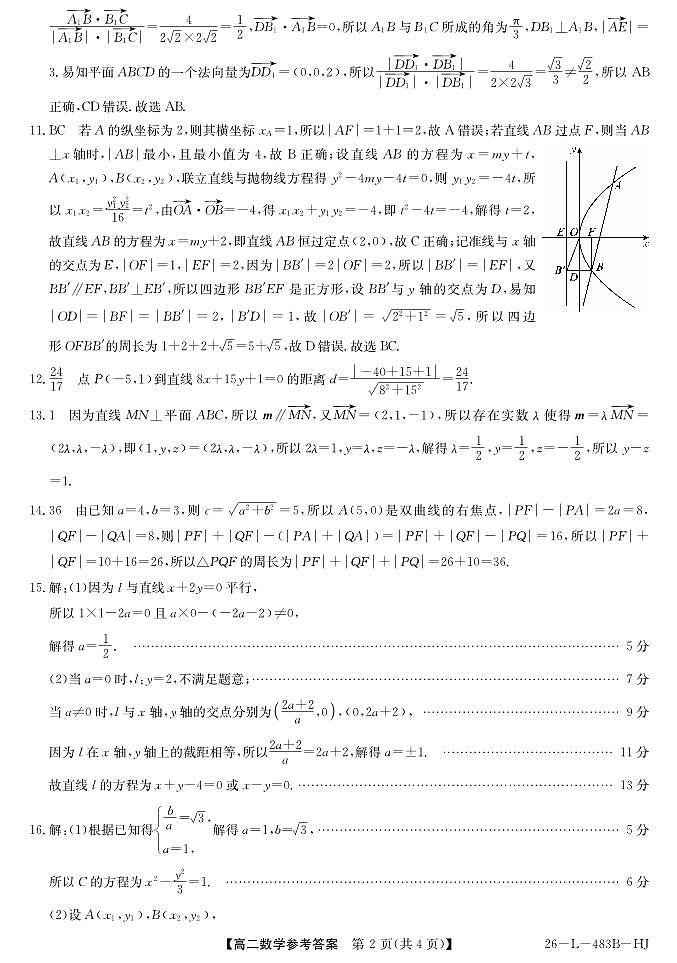 $\frac{\overrightarrow{A_1B}\cdot\overrightarrow{B_1C}}{|\overrightarrow{A_1B}|\cdot|\overrightarrow{B_1C}|}=\frac{4}{2\sqrt{2}\times2\sqrt{2}}=\frac{1}{2}$,$\overrightarrow{DB_1}\cdot\overrightarrow{A_1B}=0$,所以 $A_1B$ 与 $B_1C$ 所成的角为 $\frac{\pi}{3}$,$DB_1\perp A_1B$,$|\overrightarrow{AE}|=$
3.易知平面 ABCD 的一个法向量为$\overrightarrow{DD_1}=(0,0,2)$,所以$\frac{|\overrightarrow{DD_1}\cdot\overrightarrow{DB_1}|}{|\overrightarrow{DD_1}|\cdot|\overrightarrow{DB_1}|}=\frac{4}{2\times2\sqrt{3}}=\frac{\sqrt{3}}{3}\neq\frac{\sqrt{2}}{2}$,所以 AB
正确,CD 错误.故选 AB.
11.BC 若 A 的纵坐标为 2,则其横坐标 $x_A=1$,所以|AF|=1+1=2,故 A 错误;若直线 AB 过点 F,则当 AB
⊥x 轴时,|AB|最小,且最小值为 4,故 B 正确;设直线 AB 的方程为 x=my+t,
$A(x_1,y_1)$,$B(x_2,y_2)$,联立直线与抛物线方程得 $y^2-4my-4t=0$,则 $y_1y_2=-4t$,所
以 $x_1x_2=\frac{y_1^2y_2^2}{16}=t^2$,由$\overrightarrow{OA}\cdot\overrightarrow{OB}=-4$,得 $x_1x_2+y_1y_2=-4$,即 $t^2-4t=-4$,解得 t=2,
故直线 AB 的方程为 x=my+2,即直线 AB 恒过定点(2,0),故 C 正确;记准线与 x 轴
的交点为 E,|OF|=1,|EF|=2,因为|BB′|=2|OF|=2,所以|BB′|=|EF|,又
BB′∥EF,BB′⊥EB′,所以四边形 BB′EF 是正方形,设 BB′与 y 轴的交点为 D,易知
|OD|=|BF|=|BB′|=2,|B′D|=1,故|OB′|=$\sqrt{2^2+1^2}=\sqrt{5}$,所以四边
形 OFBB′的周长为 1+2+2+$\sqrt{5}$=5+$\sqrt{5}$,故 D 错误.故选 BC.
y
A
E O F x
B′ D B
12.$\frac{24}{17}$ 点 P(-5,1)到直线 8x+15y+1=0 的距离 $d=\frac{|-40+15+1|}{\sqrt{8^2+15^2}}=\frac{24}{17}$.
13.1 因为直线 MN⊥平面 ABC,所以 $m∥\overrightarrow{MN}$,又$\overrightarrow{MN}=(2,1,-1)$,所以存在实数 λ 使得 $m=λ\overrightarrow{MN}=$
(2λ,λ,-λ),即(1,y,z)=(2λ,λ,-λ),所以 2λ=1,y=λ,z=-λ,解得 $λ=\frac{1}{2}$,$y=\frac{1}{2}$,$z=-\frac{1}{2}$,所以 y-z
=1.
14.36 由已知 a=4,b=3,则 $c=\sqrt{a^2+b^2}=5$,所以 A(5,0)是双曲线的右焦点,|PF|-|PA|=2a=8,
|QF|-|QA|=8,则|PF|+|QF|-(|PA|+|QA|)=|PF|+|QF|-|PQ|=16,所以|PF|+
|QF|=10+16=26,所以△PQF 的周长为|PF|+|QF|+|PQ|=26+10=36.
15.解:(1)因为 l 与直线 x+2y=0 平行,
所以 1×1-2a=0 且 a×0-(-2a-2)≠0,
解得 $a=\frac{1}{2}$. …… 5 分
(2)当 a=0 时,l:y=2,不满足题意; …… 7 分
当 a≠0 时,l 与 x 轴,y 轴的交点分别为$(\frac{2a+2}{a},0)$,(0,2a+2), …… 9 分
因为 l 在 x 轴,y 轴上的截距相等,所以$\frac{2a+2}{a}=2a+2$,解得 a=±1. …… 11 分
故直线 l 的方程为 x+y-4=0 或 x-y=0. …… 13 分
16.解:(1)根据已知得$\begin{cases}\frac{b}{a}=\sqrt{3},\\a=1,\end{cases}$解得 a=1,b=$\sqrt{3}$, …… 5 分
所以 C 的方程为 $x^2-\frac{y^2}{3}=1$. …… 6 分
(2)设 $A(x_1,y_1)$,$B(x_2,y_2)$,
【高二数学参考答案 第 2 页(共 4 页)】 26-L-483B-HJ